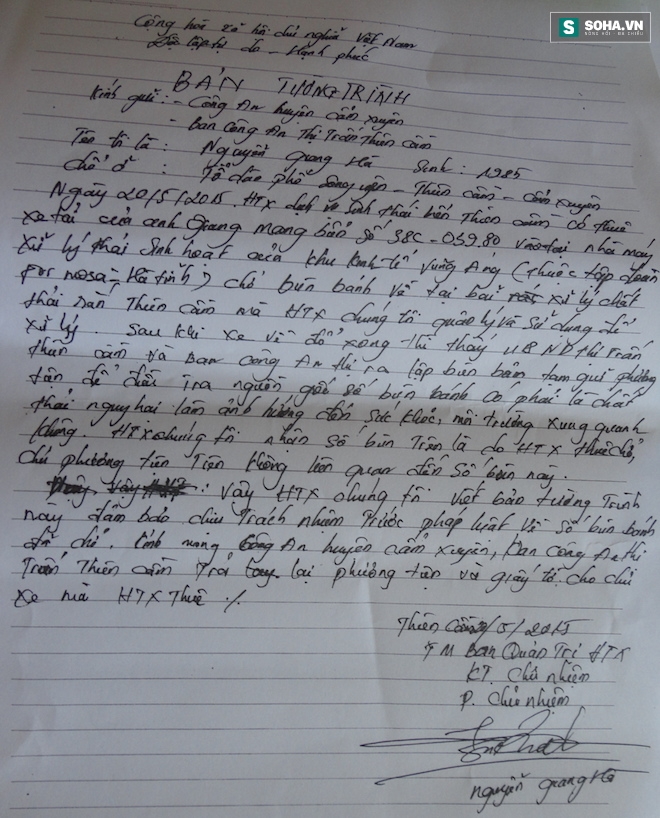 SOHA.VN
SỐNG HỎI - ĐA CHIỀU
Cộng hòa xã hội chủ nghĩa Việt Nam
Độc lập tự do - Hạnh phúc
BẢN TƯỜNG TRÌNH
Kính gửi: - Công An huyện cẩm xuyên
- Ban công An Thị Trấn Thiên cầm
Tên tôi là : Nguyễn Quang Hà Sinh: 1985
chổ ở : Tổ dân phố Song yên - Thiên cầm - cẩm xuyên
Ngày 20/5/2015. HTX dịch vụ sinh thái biển Thiên cầm có thuê
xe tải của anh Giang mang biển số 38C - 059.80 vào tại nhà máy
xử lý thải sinh hoạt của khu kinh tế vũng Áng (thuộc tập đoàn
For mosa - Hà tĩnh) chở bùn bánh về tại bãi xử lý chất
thải rắn Thiên Cầm mà HTX chúng tôi quản lý và sử dụng để
xử lý. Sau khi xe về đổ xong thì thấy UBND thị Trấn
thiên cầm và Ban công An thị ra lập biên bản tạm giử phương
tiện để điều tra nguồn gốc số bùn bánh có phải là chất
thải nguy hại làm ảnh hưởng đến sức khỏe, môi trường xung quanh
không. HTX chúng tôi nhận số bùn Trên là do HTX thuê chở,
chủ phương tiện Trên không liên quan đến số bùn này.
vậy HTX chúng tôi viết bản tường Trình
này đảm bảo chịu Trách nhiệm Trước pháp luật về số bùn bánh
đã chở. kính mong Công An huyện cẩm xuyên, Ban công An thị
Trấn Thiên cầm Trả lại phương tiện và giấy tờ cho chủ
xe mà HTX Thuê ./.
Thiên Cầm /5/2015
TM Ban Quản Trị HTX
KT. Chủ nhiệm
P. chủ nhiệm
nguyễn quang Hà